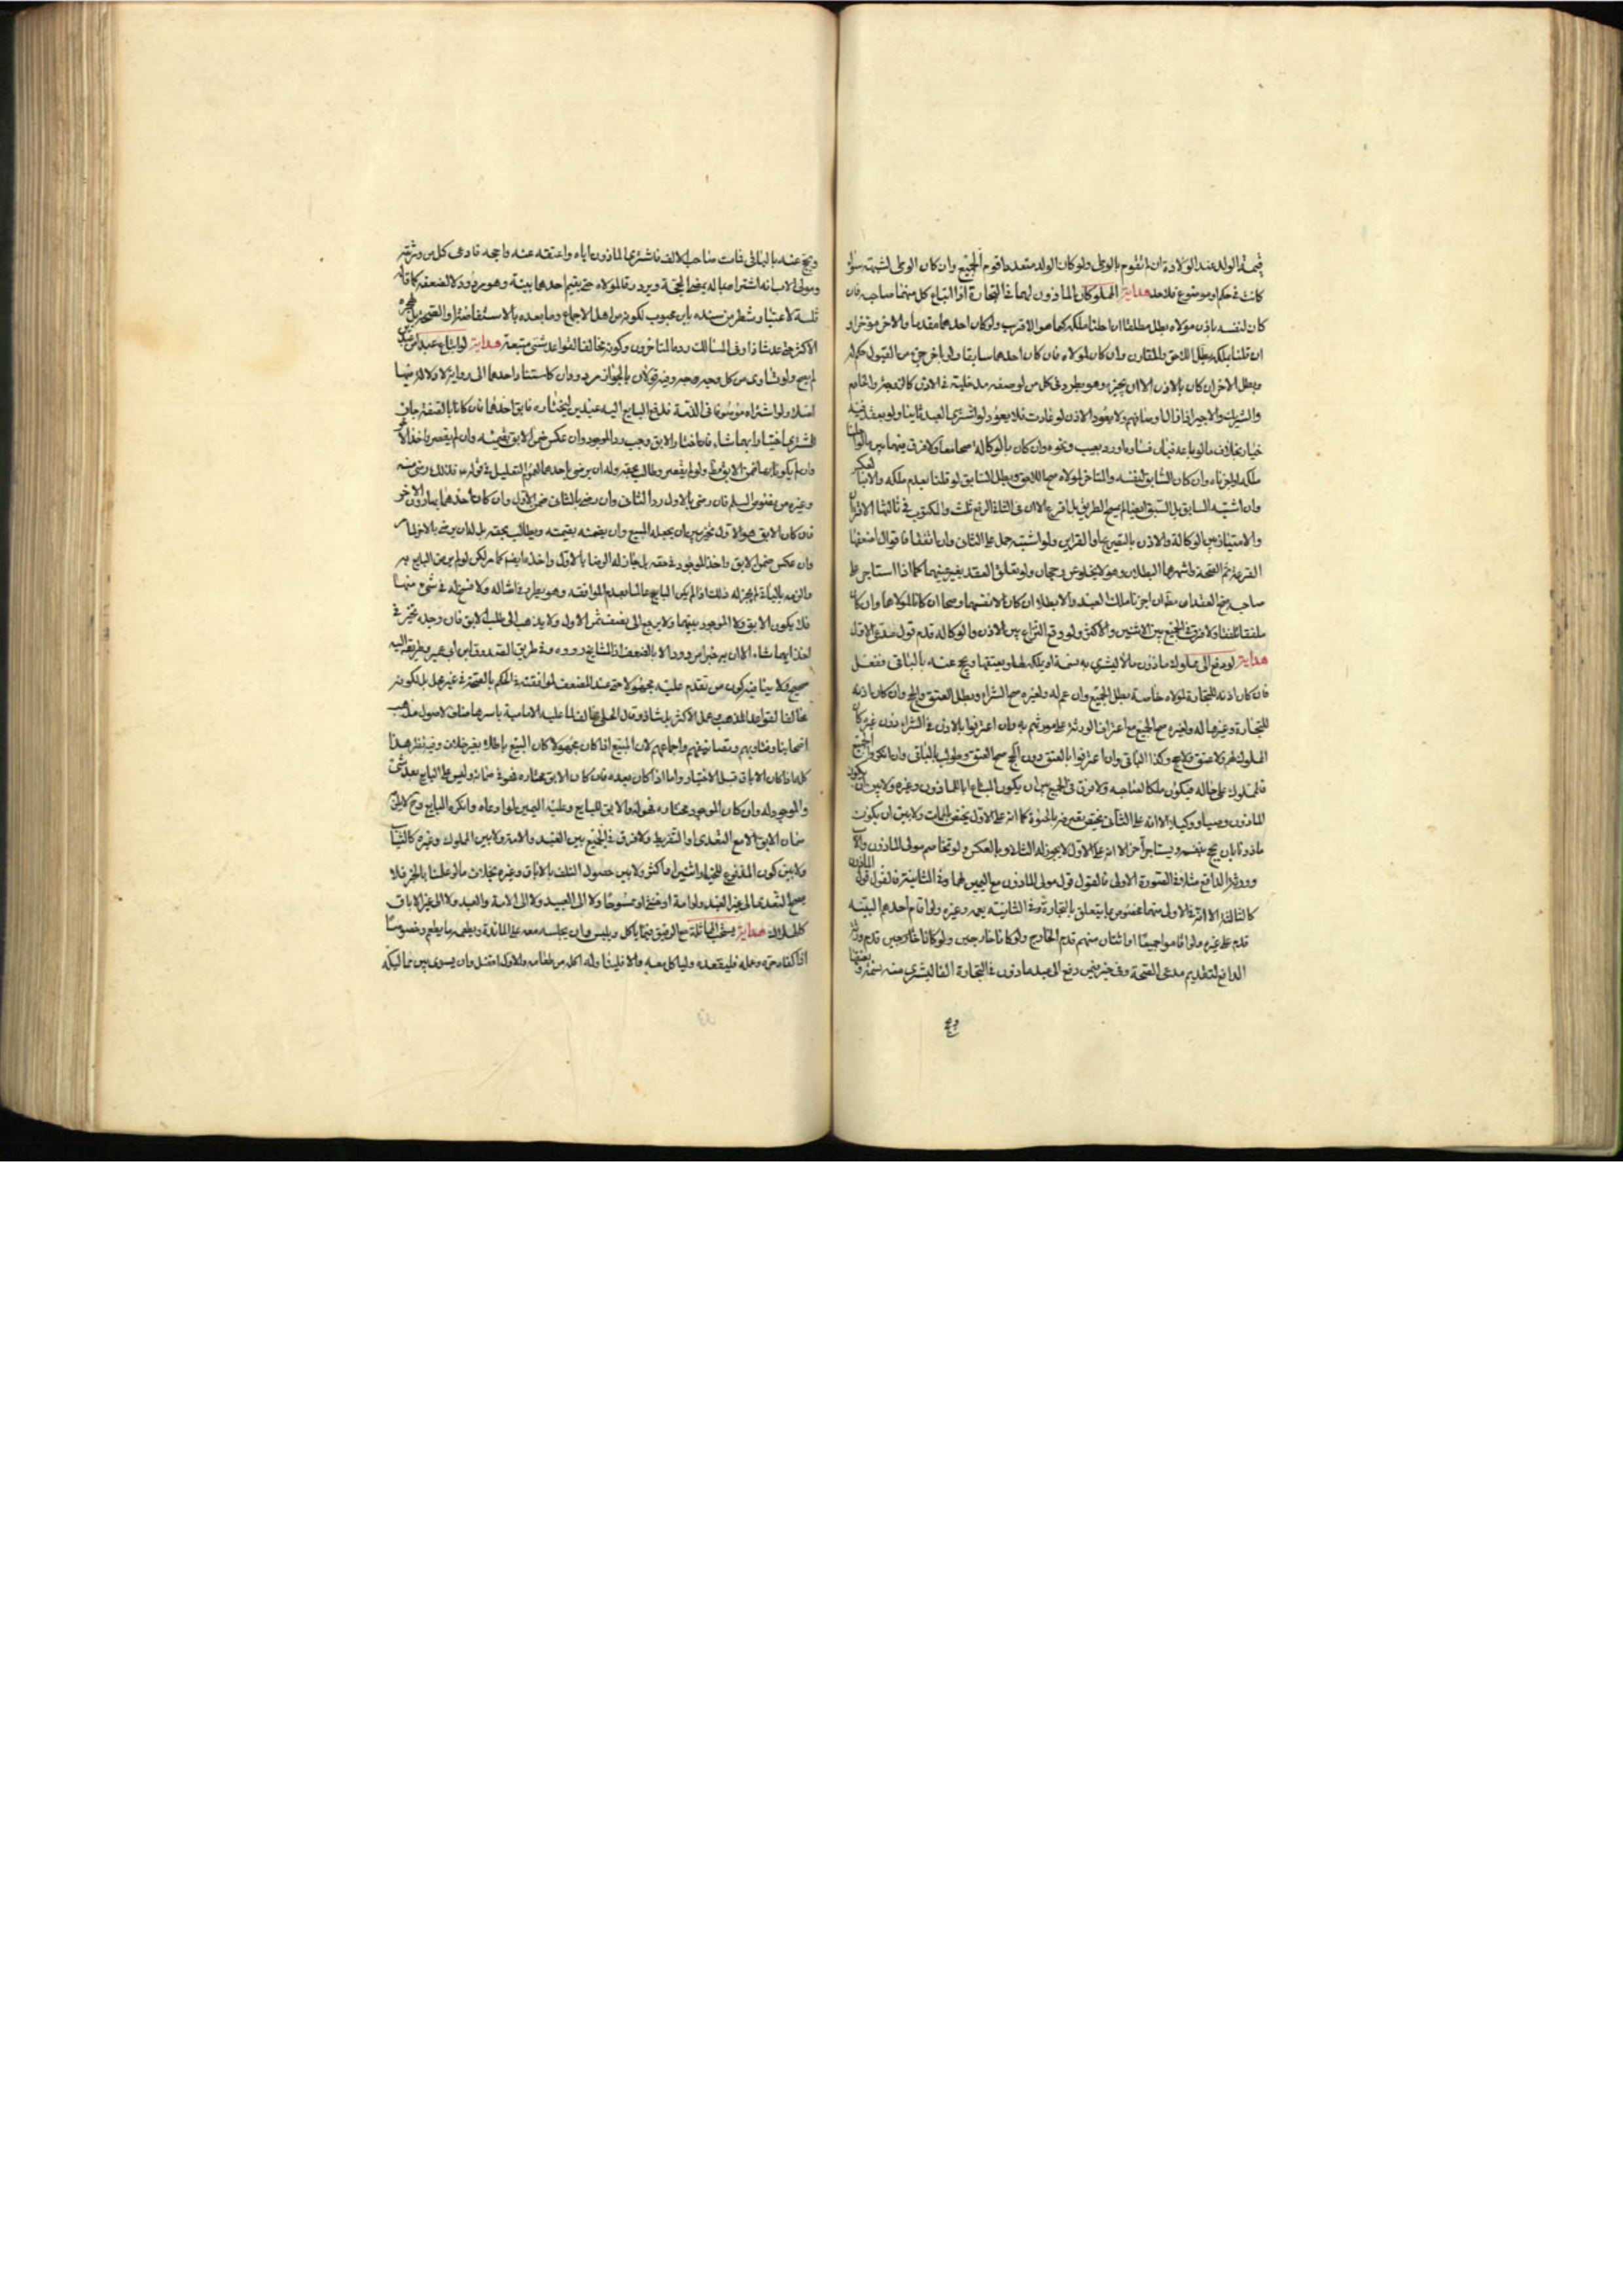 قيمة الولد عند الولادة ان لم تقوم بالوطي ولو كان الولد متعددا قوم الجميع وان كان الوطي لشبهة سواء
كانت في حكم او موضوع فلا حد هداية المملوكان الماذون لهما في التجارة اذا ابتاع كل منهما صاحبه فان
كان لنفسه باذن مولاه بطل مطلقا ان احلنا ملكه كما هو الاقرب ولو كان احدهما مقدما والاخر مؤخرا و
ان قلنا بملكه بطل اللاحق والمقارن وان كان لمولاه فان كان احدهما سابقا ولو باخر جزء من القبول حكم له
وبطل الاخر ان كان بالاذن الا ان يجيزه وهو يطرد في كل من لوصفه مدخلية في الاذن كالتدبير والخادم
والشريك والاجير
خيار بخلاف ما لو باعه فبان فساده او رد بعيب ونحوه وان كان بالوكالة صحا معا ولا فرق
ملكه وان كان السابق لنفسه والمتاخر لمولاه صح اللاحق وبطل السابق لو قلنا بعدم ملكه
وان اشتبه السابق بل السبق ايضا لم يمسح الطريق بل اقرع
والامتياز بين الوكالة والاذن بالتصريح او القراين ولو اشتبه حمل على الثاني وان انتفا فاقوال اضعفها
القرعة ثم الصحة واشهرها البطلان وهو لا يخلو عن رجحان ولو تعلق العقد بغير عينهما كما اذا استاجر
صاحبه صح العقدان مطلقا ان اجزنا ملك العبد والا بطلا ان كان لانفسهما وصحا ان كانا لمولاهما وان كان
ملفقا تلفقا ولا فرق في الجميع بين الاثنين والاكثر ولو وقع النزاع بين الاذن والوكالة قدم قول مدعي الاول
هداية لو دفع الى مملوك ماذون مالا ليشري به نسمة ويعتقها ويحج عنه بالباقي ففعل
فان كان اذنه للتجارة لمولاه خاصة بطل الجميع وان عم له ولغيره صح الشراء وبطل العتق والحج وان كان اذنه
للتجارة وغيرها له ولغيره صح الجميع مع اعتراف الورثة وان اعترفوا بالاذن في الشراء دون غيره كان
المملوك لهم ولا عتق ولا حج وكذا الباقي وان اعترفوا بالعتق دون الحج صح العتق وطولب بالباقي وان انكروا الجميع
فالمملوك على حاله فيكون ملكا لصاحبه ولا فرق في الجميع بين ان يكون المبتاع ابا للماذون وغيره ولا بين ان يكون
الماذون وصيا او وكيلا الا انه على الثاني يختص تصرفه بالحيوة كما انه على الاول يختص بالممات ولا بين ان يكون
ماذونا بان يحج بنفسه ويستاجر اخر الا انه على الاول لا يجوز له الثاني وبالعكس ولو تخاصم مولى الماذون والاب
وورثة الدافع مثلا ففي الصورة الاولى فالقول قول مولى الماذون مع اليمين لهما وفي الثانية فالقول قول الماذون
كالثالثة الا ان في الاولى منهما مخصوص بما يتعلق بالتجارة وفي الثانية يعمه وغيره ولو اقام احدهم البينة
قدم على غيره ولو اقاموا جميعا او اثنان منهم قدم الخارج ولو كانا خارجين قدم ورثة
الدافع لتقديم مدعي الصحة وفي خبر فيمن دفع الى عبد ماذون في التجارة الفا ليشري منه نسمة ويعتقها
ويحج
ويحج عنه بالباقي فمات صاحب الالف فاشترى الماذون اباه واعتقه عنه واحجه فادعى كل من ورثته
ومولى الاب انه اشتراه بماله يمضي الحجة ويرد رقا لمولاه حتى يقيم احدهما بينة وهو مردود لا لضعفه كما قاله
ثلثة لاعتبار شطر من سنده بابن محبوب لكونه من اهل الاجماع وما بعده بالاستفاضة
الاكثر حتى عد شاذا وفي المسالك رده المتاخرون وكونه مخالفا لقواعد شتى متبعة هداية لو ابتاع عبدا من عبدين
لم يصح ولو تساوى من كل وجه وفيه قولان بالجواز مردودان كاستناد احدهما الى رواية لا دلالة فيها
اصلا ولو اشتراه موصوفا في الذمة فدفع البايع اليه عبدين ليختار فابق احدهما فان كانا بالصفة جاز
للمشتري اختيار ايهما شاء فان اختار الابق وجب رد الموجود وان عكس ضمن الابق بقيمته
وان لم يكونا بها ضمن الابق ولو لم يقصر وطالب بحقه وله ان يرضى باحدهما لعموم التعليل
وغيره من نصوص السلم فان رضي بالاول رد الثاني وان رضي بالثاني ضمن الاول وان كان احدهما بها دون الاخر
فان كان الابق هو الاول تخير بين ان يجعله المبيع وان يضمنه بقيمته ويطالب بحقه بل له ان يرضى بالاخر
وان عكس ضمن الابق واخذ الموجود بحقه بل جاز له الرضا بالاول واخذه ايضا كما مر لكن لو لم يرض البايع به
والزمه بالباقي لم يجز له ذلك اذا لم يكن البايع عالما بعدم الموافقة وهو يطرد في امثاله ولا فسخ له في شيء منها
فلا يكون الابق ولا الموجود بينهما ولا يرجع الى نصف ثمن الاول ولا يذهب الى طلب الابق فان وجده تخير في
اخذ ايهما شاء الا ان به خبرا مردودا لا بالضعف
صحيح ولا ينافيه كون من تقدم عليه مجهولا حتى عند المضعف لموافقته في الحكم بالصحة في غير محل بل لكونه
مخالفا لقواعد المذهب وعمل الاكثر بل شاذ وقال الحلي مخالف لما عليه الامامية باسرها مناف لاصول مذهب
اصحابنا وفتاويهم وتصانيفهم واجماعهم لان المبيع اذا كان مجهولا كان البيع باطلا بغير خلاف وفيه نظر هذا
كله اذا كان الاباق قبل الاختيار واما اذا كان بعده فان كان الابق مختاره فهو في ضمانه وليس على البايع بعد شيء
والموجود له وان كان الموجود مختاره فهو له والابق للبايع وعليه اليمين لو ادعاه وانكره البايع
ضمان الابق الا مع التعدي او التفريط ولا فرق في الجميع بين العبد والامة ولا بين المملوك وغيره كالثياب
ولا بين كون المدفوع للخيار اثنين او اكثر ولا بين حصول التلف بالاباق وغيره بخلاف ما لو علمنا بالخبر فلا
يصح التعدي الى غير العبد ولو امة او خنثى او ممسوحا ولا الى العبيد ولا الى الامة والعبد ولا الى غير الاباق
كالهلاك هداية يستحب المماثلة مع الرقيق فيما ياكل ويلبس وان يجلسه معه على المائدة ويطعمه مما يطعم وخصوصا
اذا كفاه حره وعمله فليقعده ولياكل معه والا فليناوله اكلة من طعامه والاول افضل وان يسوي بين مماليكه